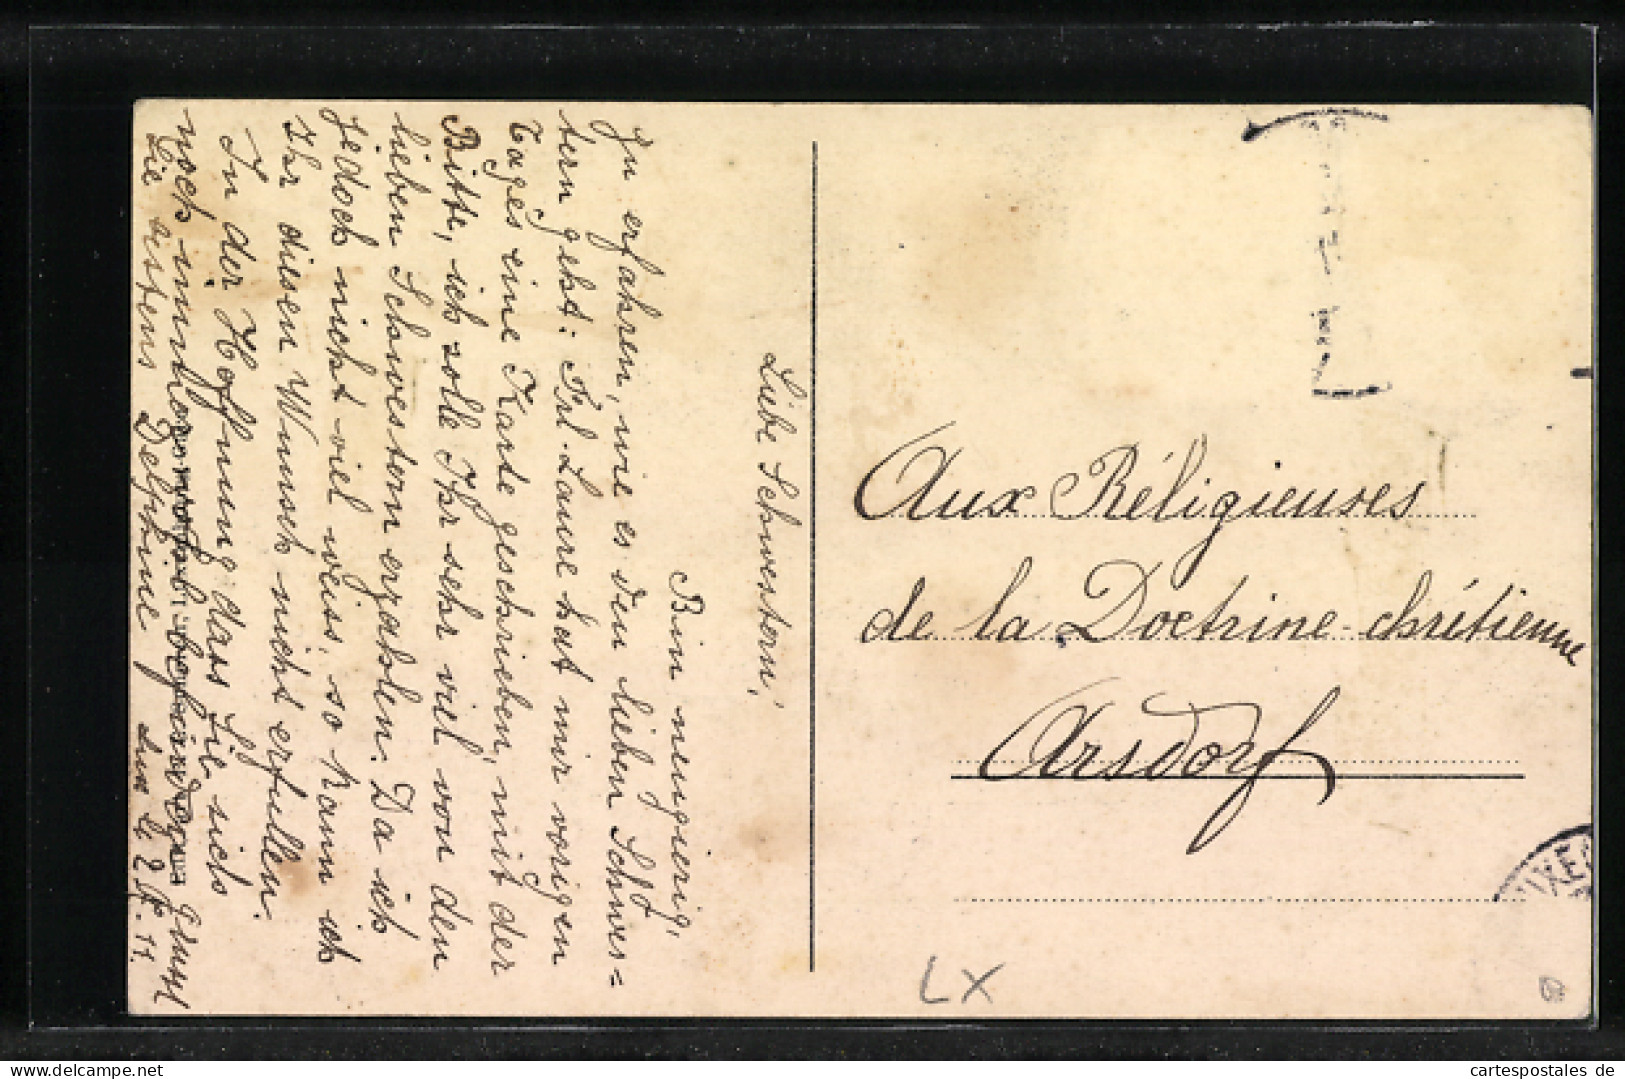 Liebe Schwestern,
Bin neugierig,
zu erfahren, wie es den lieben Schwes=
tern geht: Frl. Laure hat mir vorigen
Tages eine Karte geschrieben, mit der
Bitte, ich solle Ihr sehr viel von den
lieben Schwestern erzahlen. Da ich
jedoch nicht viel weiss, so kann ich
Ihr diesen Wunsch nicht erfullen.
In der Hoffnung dass Sie sich
noch immer wohl befinden, grusst
Sie bestens Delphine
Aux Réligieuses
de la Doctrine chrétienne
Arsdorf
LX
www.cartespostales.com
cartespostales de